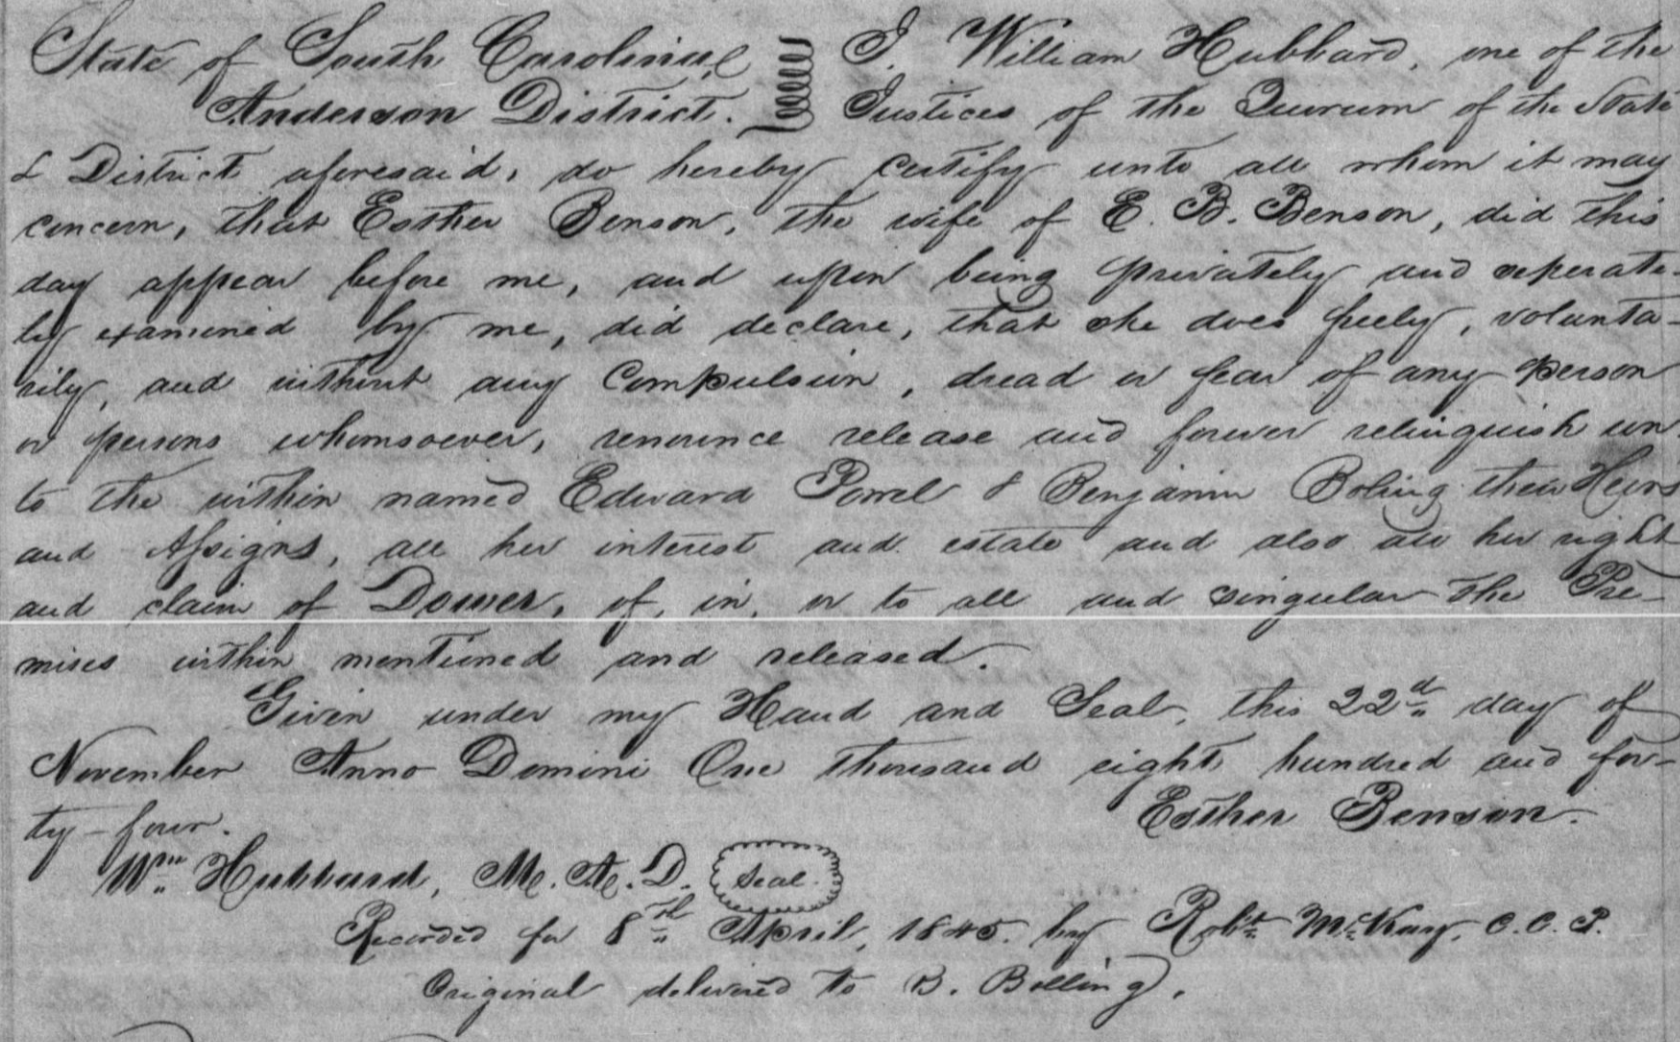 State of South Carolina } I, William Hubbard, one of the
Anderson District. } Justices of the Quorum of the State
& District aforesaid, do hereby certify unto all whom it may
concern, that Esther Benson, the wife of E. B. Benson, did this
day appear before me, and upon being privately and seperate
ly examined by me, did declare, that she does freely, volunta-
rily, and without any Compulsion, dread or fear of any person
or persons whomsoever, renounce release and forever relinquish un
to the within named Edward Powel & Benjamin Boling their Heirs
and Assigns, all her interest and estate and also all her right
and claim of Dower, of, in, or to all and singular the Pre-
mises within mentioned and released.
Given under my Hand and Seal, this 22d day of
November Anno Domini One thousand eight hundred and for-
ty-four. Esther Benson.
Wm Hubbard, M. A. D. Seal.
Recorded for 8th April, 1845. by Robt McKay, C. C. P.
Original delivered to B. Bolling.